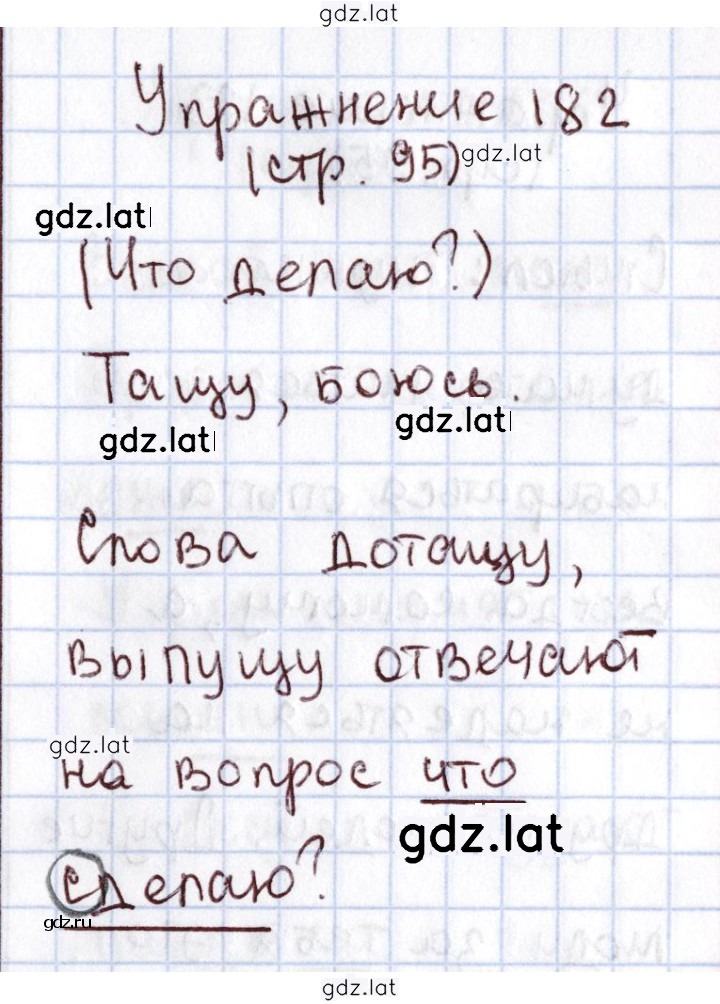 gdz.lat
Упражнение 182
(стр. 95) gdz.lat
gdz.lat
(Что делаю?)
Тащу, боюсь.
gdz.lat gdz.lat
Слова дотащу,
выпущу отвечают
gdz.lat
на вопрос что
gdz.lat
сделаю?
gdz.ru
gdz.lat